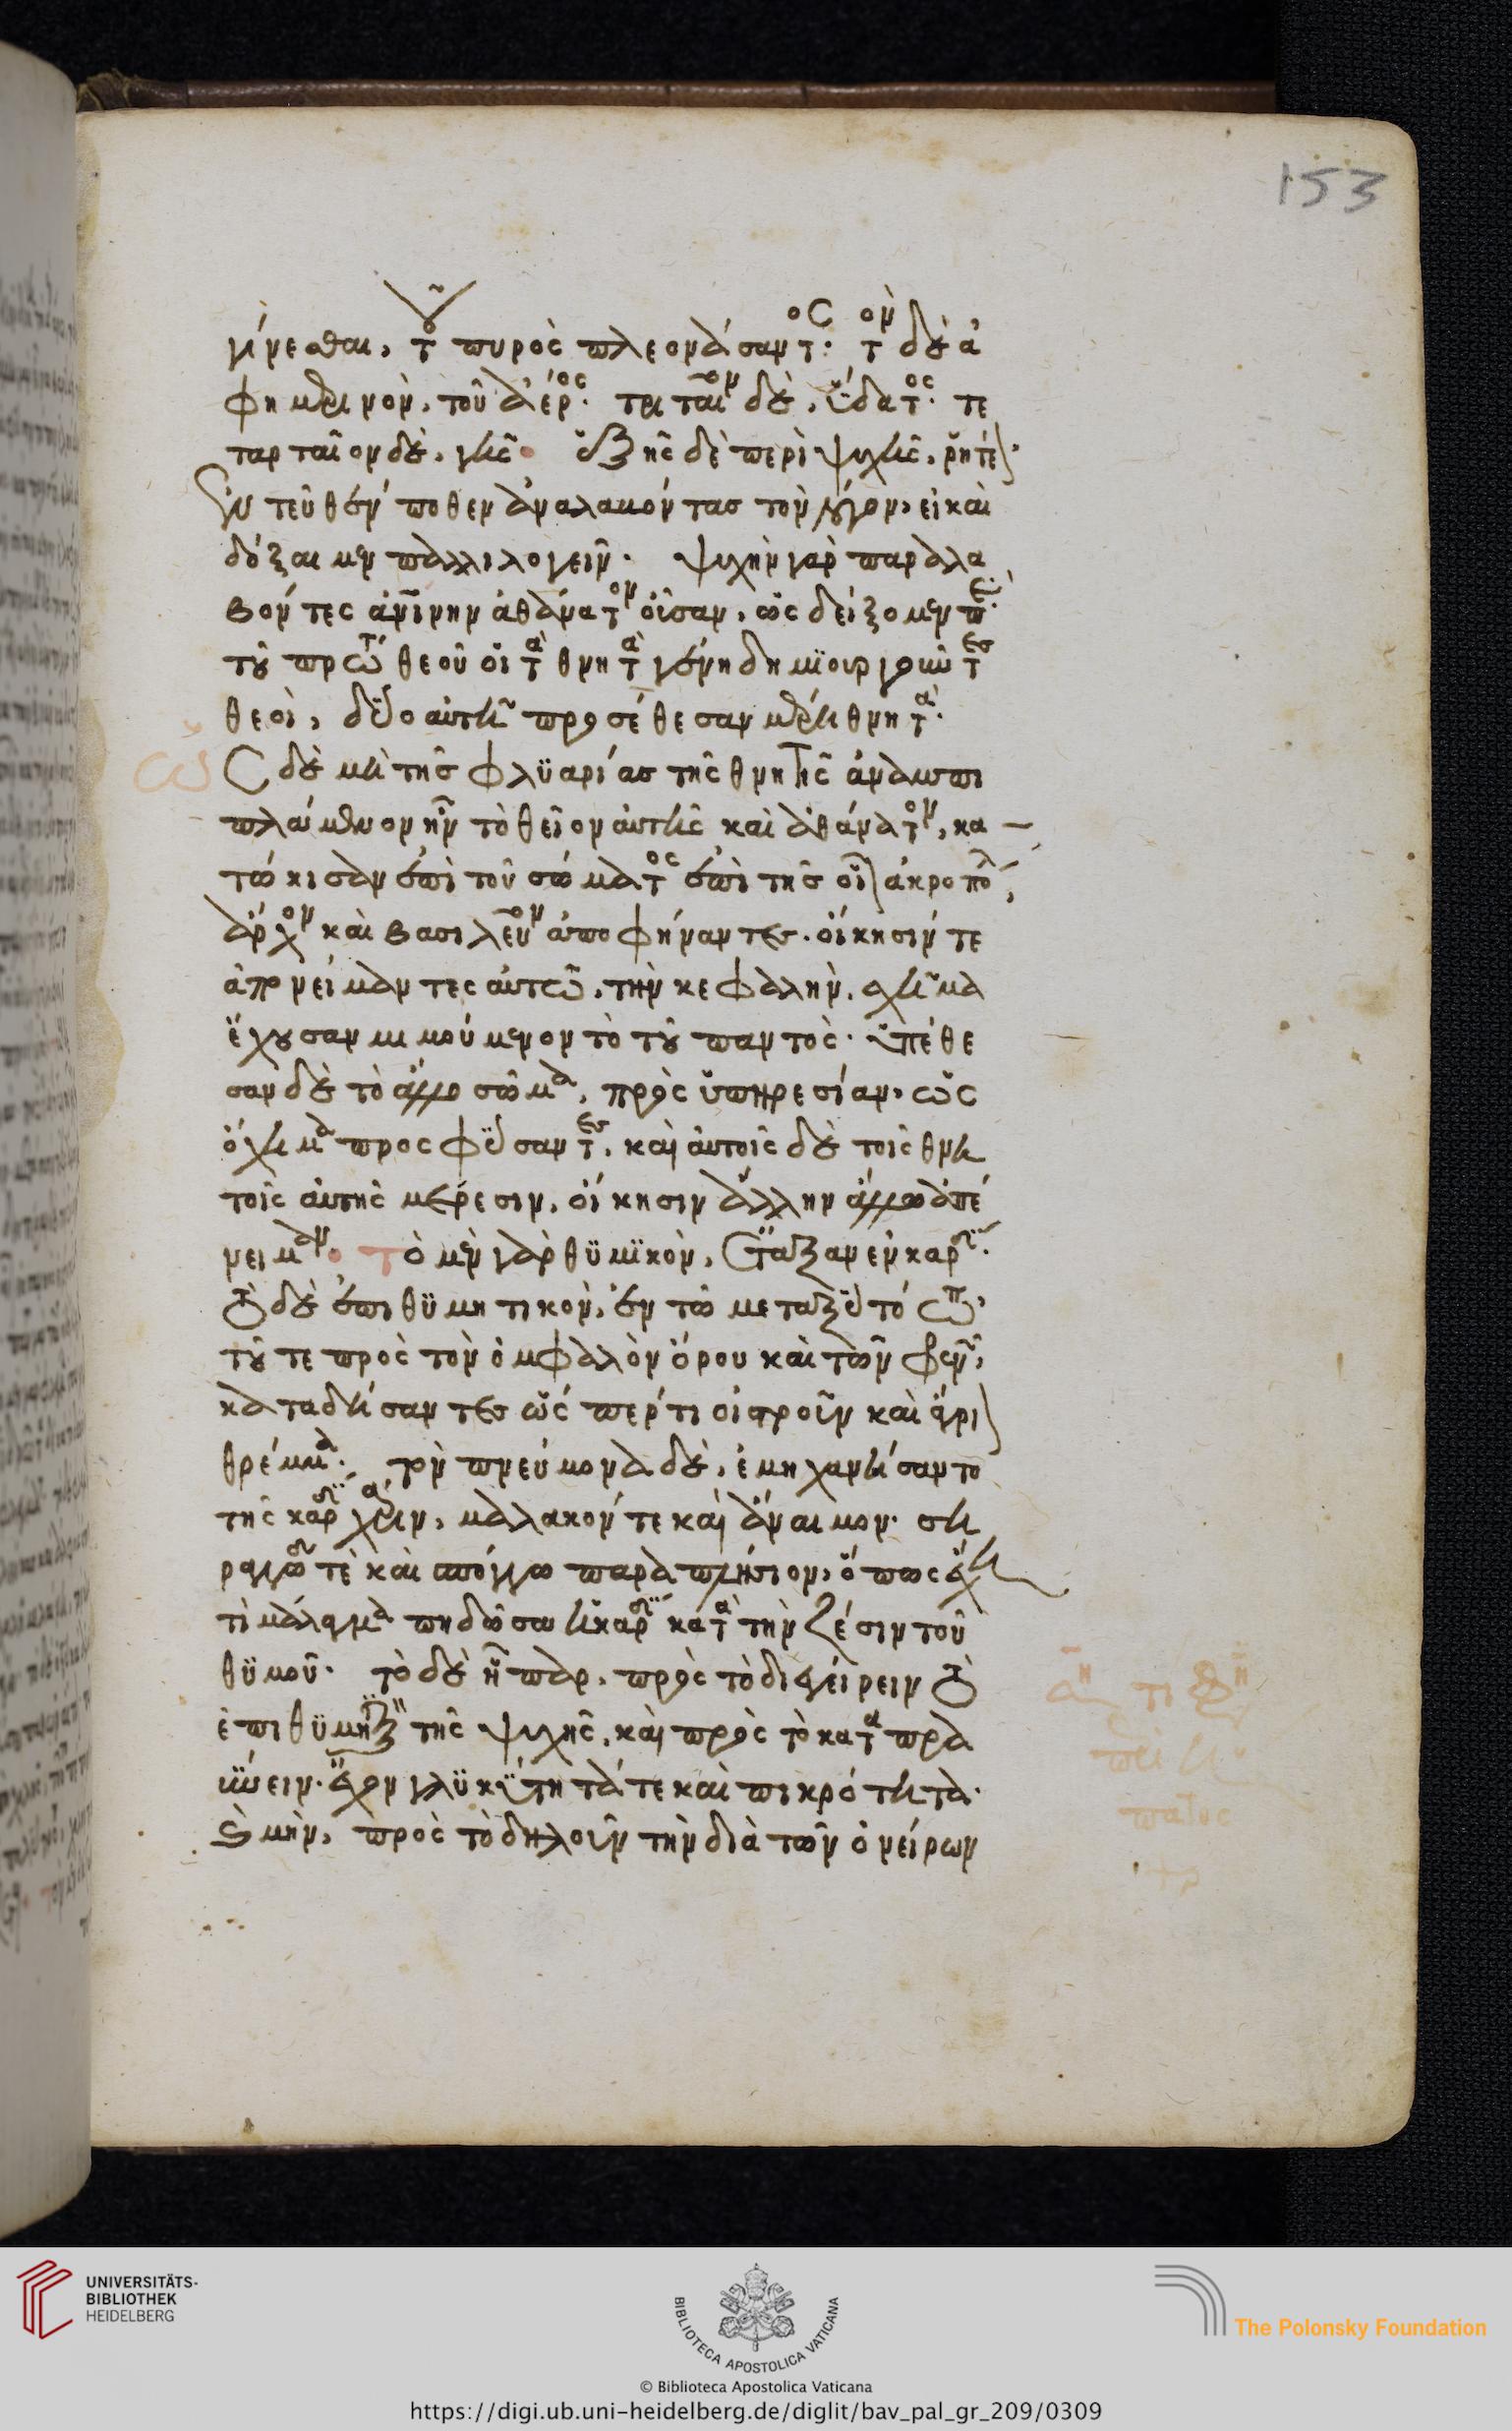 153
γίνεσθαι, τοῦ πυρὸς πλεονάσαντος· τὸν δὲ ἀ
φημερινὸν, τοῦ ἀέρος· τριταῖον δὲ, ὕδατος· τε
ταρταῖον δὲ, γῆς· ἑξῆς δὲ περὶ ψυχῆς, ῥητέ
ον τεῦθέν ποθεν ἀναλαβόντας τὸν λόγον, εἰ καὶ
δόξαιμεν παλλιλογεῖν· ψυχὴν γὰρ παραλα
βόντες ἀνίνην ἀθάνατον οὖσαν, ὡς δείξομεν
τοῦ πρώτου θεοῦ οἱ τὰ θνητὰ γένη δημιουργοῦντες
θεοὶ, δύο αὐτῆ προσέθεσαν μέρη θνητά·
ὡς δὲ μὴ τῆς φλυαρίας τῆς θνητῆς ἀναπι
πλάμενον ἦν τὸ θεῖον αὐτῆς καὶ ἀθάνατον, κα
τώκισαν ἐπὶ τοῦ σώματος ἐπὶ τῆς οἷον ἀκροπόλ
ἄρχον καὶ βασιλεῦον ἀποφήναντες· οἴκησίν τε
ἀπονείμαντες αὐτῶ, τὴν κεφαλὴν, σχῆμα
ἔχουσαν μιμούμενον τὸ τοῦ παντὸς· ὑπέθε
σαν δὲ τὸ ἄλλο σῶμα, πρὸς ὑπηρεσίαν, ὡς
ὄχημα προσφύσαντες, καὶ αὐτοῖς δὲ τοῖς θνη
τοῖς αὐτῆς μέρεσιν, οἴκησιν ἄλλην ἄλλω ἀπέ
νειμαν· τὸ μὲν γὰρ θυμικὸν, ἔταξαν ἐν καρδία·
τὸ δὲ ἐπιθυμητικὸν, ἐν τῶ μεταξὺ τόπω,
τοῦ τε πρὸς τὸν ὀμφαλὸν ὅρου καὶ τῶν φρενῶν,
καταδήσαντες ὥσπερ τι οἰστροῦν καὶ ἄγρι
θρέμμα· τὸν πνεύμονα δὲ, ἐμηχανήσαντο
τῆς καρδίας χάριν, μαλακόν τε καὶ ἄναιμον· ση
ραγγῶδη τὲ καὶ σπόγγω παραπλήσιον, ὅπως ἔχη
τὶ μάλαγμα πηδῶσα ἡ καρδία κατὰ τὴν ζέσιν τοῦ
θυμοῦ· τὸ δὲ ἧπαρ, πρὸς τὸ διεγείρειν τὸ
ἐπιθυμητικὸν τῆς ψυχῆς, καὶ πρὸς τὸ καταπρα
ΰνειν· ἔχον γλυκύτητά τε καὶ πικρότητα·
ἔτι μὴν, πρὸς τὸ δηλοῦν τὴν διὰ τῶν ὀνείρων
UNIVERSITÄTS-
BIBLIOTHEK
HEIDELBERG
BIBLIOTECA APOSTOLICA VATICANA
The Polonsky Foundation
© Biblioteca Apostolica Vaticana
https://digi.ub.uni-heidelberg.de/diglit/bav_pal_gr_209/0309